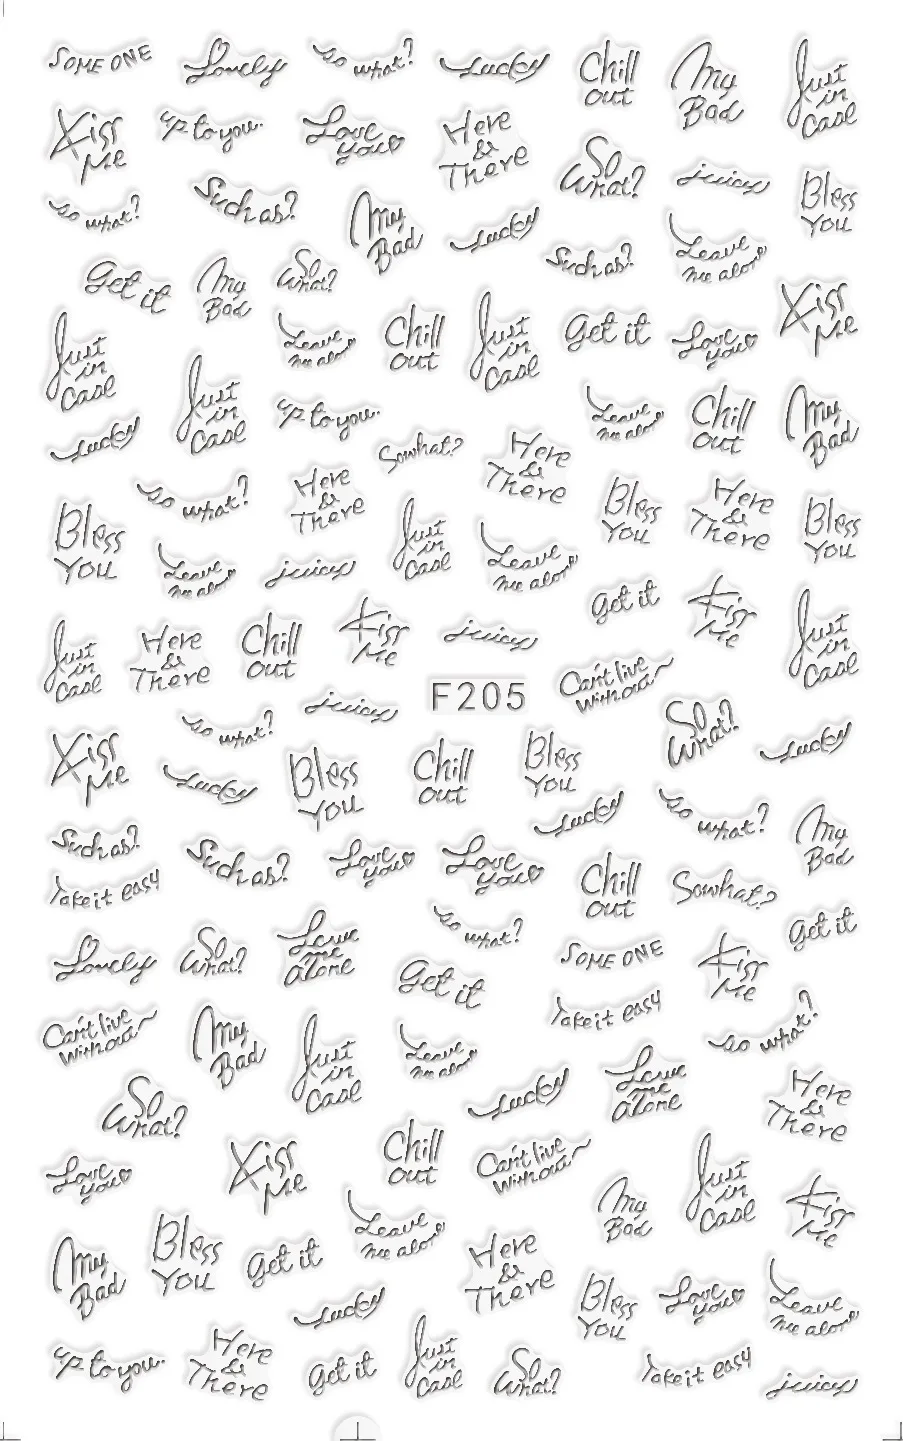 SOME ONE
Lovely
so what?
Lucky
Chill
out
My
Bad
Just
in
Case
Kiss
Me
up to you.
Love
you
Here
&
There
So
What?
juicy
Bless
You
so what?
Such as?
My
Bad
Lucky
Such as?
Leave
me alone
Get it
My
Bad
So
What?
Kiss
Me
Just
in
Case
Leave
me alone
Chill
out
Just
in
Case
Get it
Love
you
Just
in
Case
up to you.
Leave
me alone
Chill
out
My
Bad
Lucky
So what?
Here
&
There
so what?
Here
&
There
Bless
You
Here
&
There
Bless
You
Bless
You
Leave
me alone
juicy
Just
in
Case
Leave
me alone
Get it
Kiss
Me
Just
in
Case
Just
in
Case
Here
&
There
Chill
out
Kiss
Me
juicy
Can't live
without
juicy
F205
so what?
So
What?
Lucky
Kiss
Me
Lucky
Bless
You
Chill
out
Bless
You
Lucky
so what?
My
Bad
Such as?
Such as?
Love
you
Love
you
Chill
out
So what?
Take it easy
so what?
Get it
Lovely
So
What?
Leave
me
alone
Get it
SOME ONE
Kiss
Me
Can't live
without
My
Bad
Just
in
Case
Leave
me alone
Take it easy
so what?
So
What?
Lucky
Leave
me
alone
Here
&
There
Love
you
Kiss
Me
Chill
out
Can't live
without
My
Bad
Just
in
Case
Kiss
Me
My
Bad
Bless
You
Get it
Leave
me alone
Here
&
There
Bless
You
Love
you
Leave
me alone
Lucky
up to you.
Here
&
There
Get it
Just
in
Case
So
What?
Take it easy
juicy